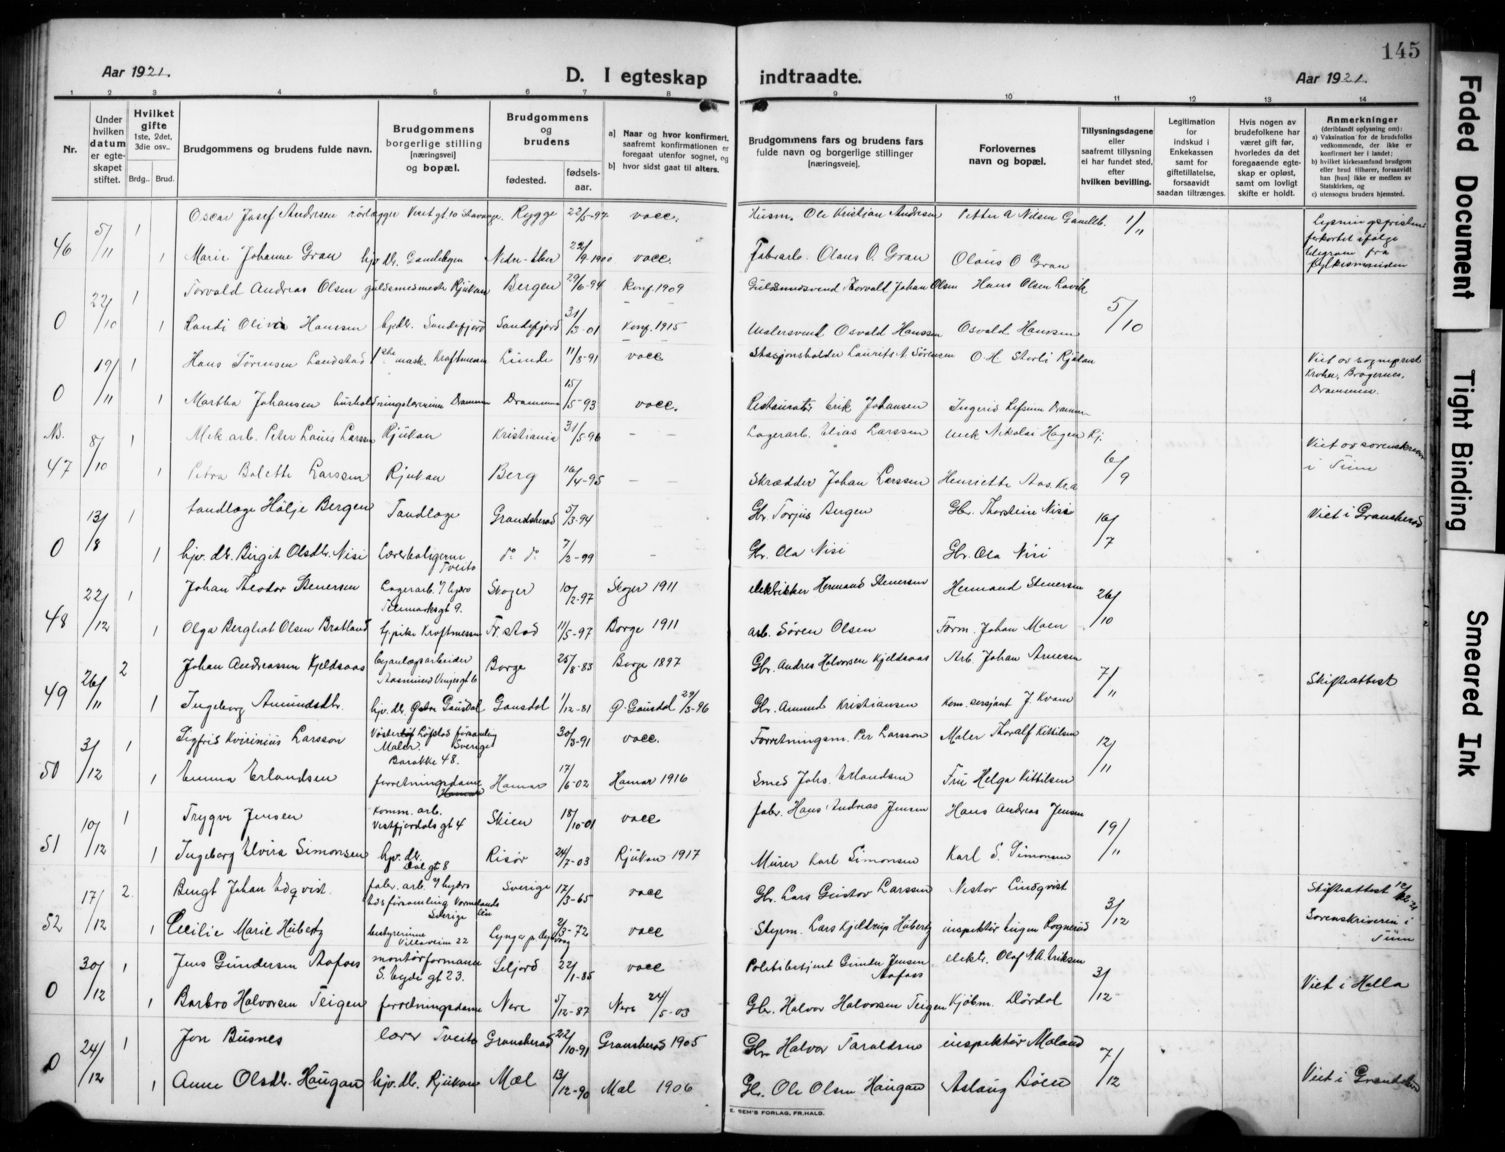 145
Aar 1921.
D. I egteskap
indtraadte.
Aar 1921.
1 2 3 4 5 6 7 8 9 10 11 12 13 14
Nr.
Under hvilken datum er egteskapet stiftet.
Hvilket gifte
1ste, 2det, 3die osv..
Brdg.. Brud.
Brudgommens og brudens fulde navn.
Brudgommens borgerlige stilling [næringsvei] og bopæl.
Brudgommens og brudens
fødested.
fødselsaar.
a) Naar og hvor konfirmert, saafremt konfirmationen er foregaat utenfor sognet, og
b) hvor sidst gaat til alters.
Brudgommens fars og brudens fars fulde navn og borgerlige stillinger [næringsvei].
Forlovernes navn og bopæl.
Tillysningsdagene eller saafremt tillysning ei har fundet sted, efter hvilken bevilling.
Legitimation for indskud i Enkekassen samt for giftetillatelse, forsaavidt saadan tiltrænges.
Hvis nogen av brudefolkene har været gift før, hvorledes da det foregaaende egteskap er opløst, samt om lovligt skifte er holdt.
Anmerkninger
(deriblandt oplysning om):
a) Vaksination for de brudefolks vedkommende, der ikke er konfirmert her i landet;
b) hvilket kirkesamfund brudgom eller brud tilhører, forsaavidt han [hun] ikke er medlem av Statskirken, og
c) utensogns bruders hjemsted.
46 5/11 1 Oscar Josef Andersen rørlægger Rygge 22/5-97 vacc. Husm. Ole Kristian Andersen Petter A Nilsen 1/11
1 Marie Johanne Gran hjv. dtr. 22/9 1900 vacc. Fabrarb. Olaus O. Gran Olaus O Gran
0 22/10 1 Torvald Andreas Olsen guldsmedmester Rjukan Bergen 29/6-94 Konf. 1909 Guldsmedsvend Thorvald Johan Olsen Hans Olsen 5/10
1 Randi Olivia Hansen hjdtr. Sandefjord Sandefjord 31/3-01 Konf. 1915 Malersvend Osvald Hanssen Osvald Hanssen
0 19/11 1 Hans Sørensen Landstad mask. Kraftmoen Lunde 11/8-91 vacc Stasjonsholder Laurits A Sørensen O. A Storli Rjukan Viet av sogneprest Krohn, Bragernes, Drammen.
1 Martha Johansen Drammen Drammen 15/5-93 vacc. Restauratør Erik Johansen
Nb. 47 8/10 1 Mek. arb. Peter Louis Larssen Rjukan Kristiania 31/5-96 — — Lagerarb. Elias Larssen Nikolai Hagen Rj. 6/9 Viet av sorenskriveren i Tinn
1 Petra Bolette Larssen Rjukan Berg 16/4-95 — Skrædder Johan Larssen Henriette Aas. Kr.a
0 13/8 1 tandlæge Hølje Bergen Tandlæge Gransherad 5/3-94 Gbr. Torjus Bergen Gbr. Thorstein Nisi 16/7 Viet i Gransherad
1 hjv. dtr. Birgit Olsdtr. Nisi Tveito do do 7/2-99 — Gbr. Ola Nisi Gbr. Ola Nisi
48 22/12 1 Johan Theodor Stenersen Lagerarb. v/ hydro Telemarksgt 9. Skoger 10/2-97 Skoger 1911 Hermand Stenersen Hermand Stenersen 26/10
1 Olga Berghot Olsen Bratland hj.pike Kraftmoen Fr.stad 11/5-97 Borge 1911 arb. Søren Olsen Form. Johan Moen
49 26/11 2 Johan Andreassen Kjeldsaas Borge 25/8-83 Borge 1897 Gbr Andres Halvorsen Kjeldsaas Arb. Johan Arnesen 7/11 Skifteattest
1 Ingeborg Amundsdtr. hjv. dtr. Østre Gausdal Gausdal 1/12-81 Ø. Gausdal 29/3-96 Gbr. Amund Kristiansen Kom. sersjant J. Kvam
50 3/12 1 Sigfrid Kvirinius Larsson Maler. Sverige Barakke 48. 30/3-91 vacc. Forretningsm. Per Larsson Maler Thoralf Kittilsen 12/11
1 Emma Erlandsen forretningsdame Hamar 17/6-02 Hamar 1916 Smed Johs. Erlandsen Fru Helga Kittilsen
51 10/12 1 Trygve Jensen Komm. arb. Vestfjordalsgt 4 Skien 18/10-01 vacc fabr. Hans Andreas Jensen Hans Andreas Jensen 19/11
1 Ingeborg Elvira Simonsen hjv. dtr. Dalgt 8 Risør 24/7-03 Rjukan 1917 Murer Karl Simonsen Karl S. Simonsen
52 17/12 2 Bengt Johan Edqvist. fabr. arb. v/ hydro Sverige Sverige 17/3-65 vacc Gbr. Lars Gustav Larssen Nestor Lindqvist 3/12 Skifteattest Sorenskriveren i Tinn
1 Cecilie Marie Huberg bestyrerinne Villaveien 22 2/3-72 vacc Styrm. Lars Kjeldrup Huberg inspektør
0 30/12 1 Jens Gundersen Aafoss montørformann S. byde gt 23. Seljord 22/1-85 vacc Politibetjent Gunder Jensen Aafoss elektr. Olaf Eriksen 3/12 Viet i Holla
1 Barbro Halvorsen Teigen forretningsdame Nere 5/12-87 Nere 24/5-03 Gbr. Halvor Halvorsen Teigen Kjøbm. Dørdal
0 24/12 1 Jon Busnes lærer Tveito Gransherad 22/10-91 Gransherad 1905 Gbr Halvor Taraldsen inspektør Moland 7/12 Viet i
1 Anne Olsdtr. Haugan hjv. dtr. Rjukan Mæl 13/12-90 Mæl 1906 Gbr. Ole Olsen Haugan Aslaug Løen
E. SEM'S FORLAG, FR.HALD.
Faded Document
Tight Binding
Smeared Ink